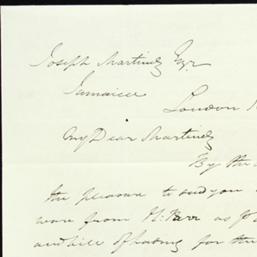 Joseph Martinez Esqr
Jamaica
London 1
My Dear Martinez
By the
the pleasure to send you
ware from H. Parr as
and bill of lading for the